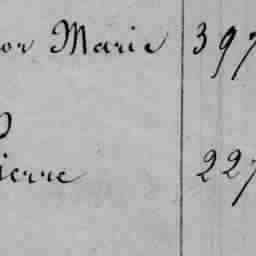 or Marie 397
ierre 227